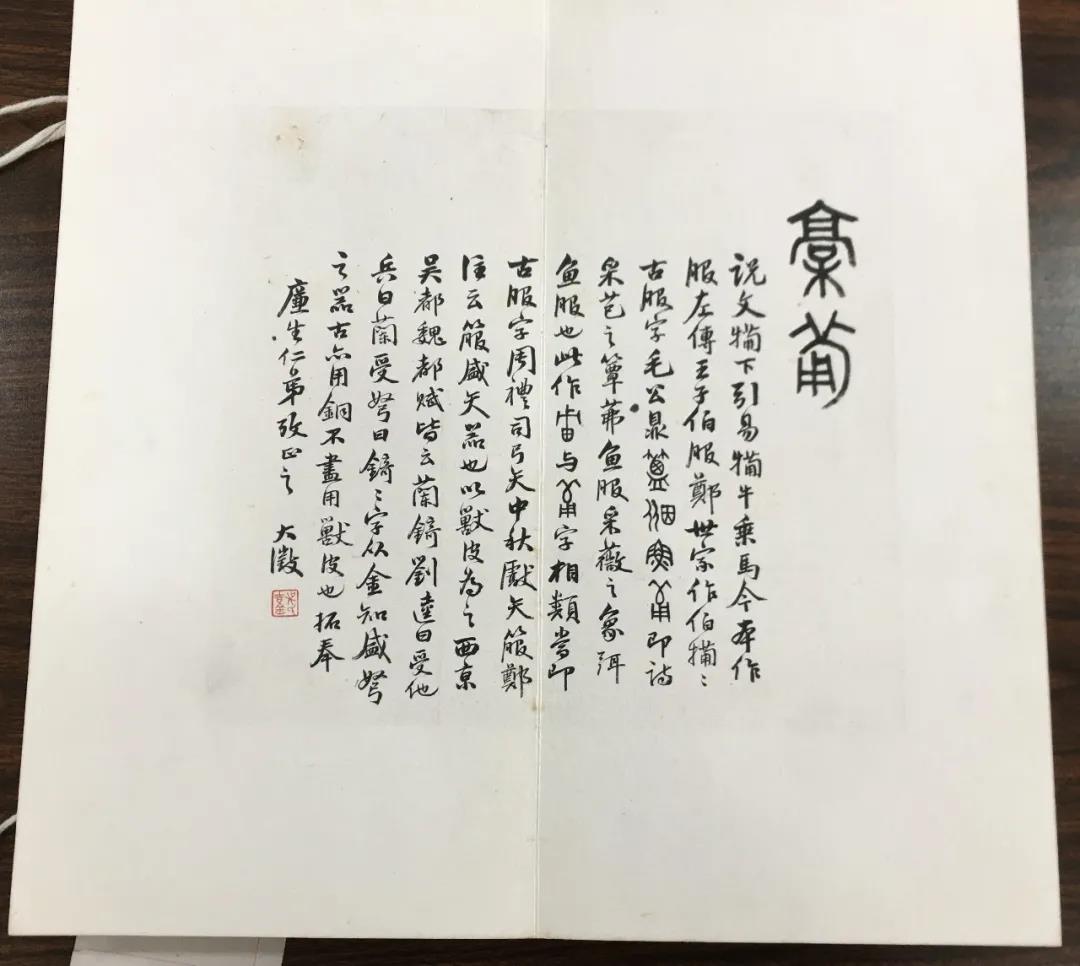 说文犕下引易犕牛乘馬今本作
服左傳王子伯服鄭世家作伯犕〻
古服字毛公鼎簟弼魚𤰇即詩
采芑之簟茀魚服采薇之象弭
魚服也此作与𤰇字相類當即
古服字周禮司弓矢中秋獻矢箙鄭
注云箙盛矢器也以獸皮為之西京
吳都魏都賦皆云蘭錡劉逵曰受他
兵曰蘭受弩曰錡〻字从金知盛弩
之器古亦用銅不盡用獸皮也拓奉
廉生仁弟攷正之 大澂